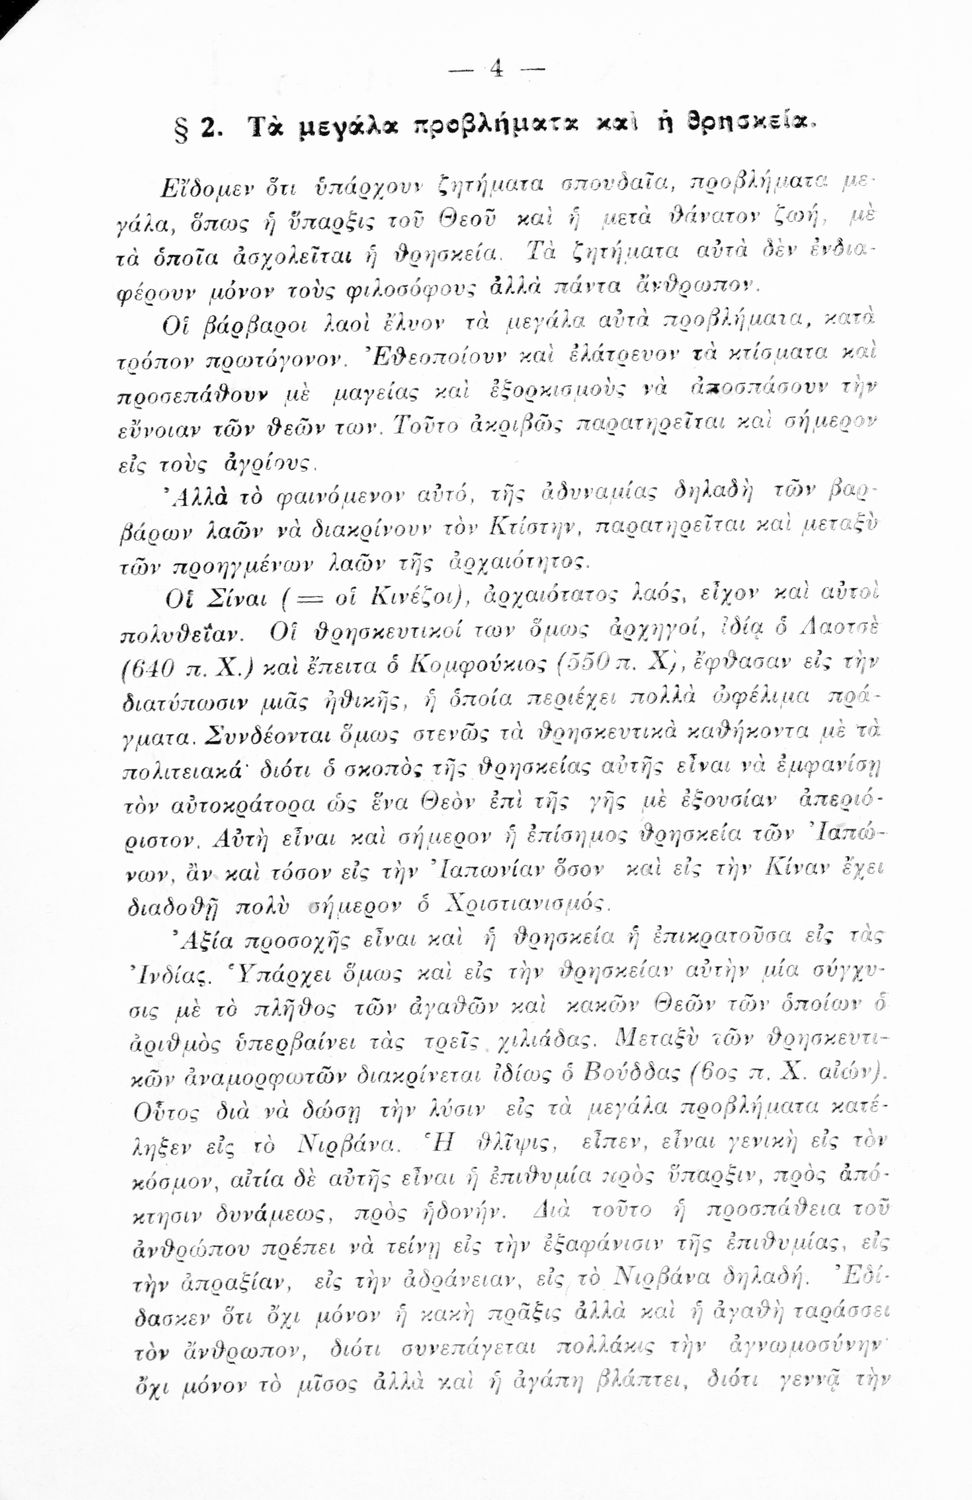 — 4 —
§ 2. Τὰ μεγάλα προβλήματα καὶ ἡ θρησκεία.
Εἴδομεν ὅτι ὑπάρχουν ζητήματα σπουδαῖα, προβλήματα με-
γάλα, ὅπως ἡ ὕπαρξις τοῦ Θεοῦ καὶ ἡ μετὰ θάνατον ζωή, μὲ
τὰ ὁποῖα ἀσχολεῖται ἡ θρησκεία. Τὰ ζητήματα αὐτὰ δὲν ἐνδια-
φέρουν μόνον τοὺς φιλοσόφους ἀλλὰ πάντα ἄνθρωπον.
Οἱ βάρβαροι λαοὶ ἔλυον τὰ μεγάλα αὐτὰ προβλήματα, κατὰ
τρόπον πρωτόγονον. Ἐθεοποίουν καὶ ἐλάτρευον τὰ κτίσματα καὶ
προσεπάθουν μὲ μαγείας καὶ ἐξορκισμοὺς νὰ ἀποσπάσουν τὴν
εὔνοιαν τῶν θεῶν των. Τοῦτο ἀκριβῶς παρατηρεῖται καὶ σήμερον
εἰς τοὺς ἀγρίους.
Ἀλλὰ τὸ φαινόμενον αὐτό, τῆς ἀδυναμίας δηλαδὴ τῶν βαρ-
βάρων λαῶν νὰ διακρίνουν τὸν Κτίστην, παρατηρεῖται καὶ μεταξὺ
τῶν προηγμένων λαῶν τῆς ἀρχαιότητος.
Οἱ Σίναι (= οἱ Κινέζοι), ἀρχαιότατος λαός, εἶχον καὶ αὐτοὶ
πολυθεΐαν. Οἱ θρησκευτικοί των ὅμως ἀρχηγοί, ἰδίᾳ ὁ Λαοτσὲ
(640 π. Χ.) καὶ ἔπειτα ὁ Κομφούκιος (550 π. Χ), ἔφθασαν εἰς τὴν
διατύπωσιν μιᾶς ἠθικῆς, ἡ ὁποία περιέχει πολλὰ ὠφέλιμα πρά-
γματα. Συνδέονται ὅμως στενῶς τὰ θρησκευτικὰ καθήκοντα μὲ τὰ
πολιτειακά· διότι ὁ σκοπὸς τῆς θρησκείας αὐτῆς εἶναι νὰ ἐμφανίσῃ
τὸν αὐτοκράτορα ὡς ἕνα Θεὸν ἐπὶ τῆς γῆς μὲ ἐξουσίαν ἀπεριό-
ριστον. Αὐτὴ εἶναι καὶ σήμερον ἡ ἐπίσημος θρησκεία τῶν Ἰαπώ-
νων, ἂν καὶ τόσον εἰς τὴν Ἰαπωνίαν ὅσον καὶ εἰς τὴν Κίναν ἔχει
διαδοθῇ πολὺ σήμερον ὁ Χριστιανισμός.
Ἀξία προσοχῆς εἶναι καὶ ἡ θρησκεία ἡ ἐπικρατοῦσα εἰς τὰς
Ἰνδίας. Ὑπάρχει ὅμως καὶ εἰς τὴν θρησκείαν αὐτὴν μία σύγχυ-
σις μὲ τὸ πλῆθος τῶν ἀγαθῶν καὶ κακῶν Θεῶν τῶν ὁποίων ὁ
ἀριθμὸς ὑπερβαίνει τὰς τρεῖς χιλιάδας. Μεταξὺ τῶν θρησκευτι-
κῶν ἀναμορφωτῶν διακρίνεται ἰδίως ὁ Βούδδας (6ος π. Χ. αἰών).
Οὗτος διὰ νὰ δώσῃ τὴν λύσιν εἰς τὰ μεγάλα προβλήματα κατέ-
ληξεν εἰς τὸ Νιρβάνα. Ἡ θλῖψις, εἶπεν, εἶναι γενικὴ εἰς τὸν
κόσμον, αἰτία δὲ αὐτῆς εἶναι ἡ ἐπιθυμία πρὸς ὕπαρξιν, πρὸς ἀπό-
κτησιν δυνάμεως, πρὸς ἡδονήν. Διὰ τοῦτο ἡ προσπάθεια τοῦ
ἀνθρώπου πρέπει νὰ τείνῃ εἰς τὴν ἐξαφάνισιν τῆς ἐπιθυμίας, εἰς
τὴν ἀπραξίαν, εἰς τὴν ἀδράνειαν, εἰς τὸ Νιρβάνα δηλαδή. Ἐδί-
δασκεν ὅτι ὄχι μόνον ἡ κακὴ πρᾶξις ἀλλὰ καὶ ἡ ἀγαθὴ ταράσσει
τὸν ἄνθρωπον, διότι συνεπάγεται πολλάκις τὴν ἀγνωμοσύνην·
ὄχι μόνον τὸ μῖσος ἀλλὰ καὶ ἡ ἀγάπη βλάπτει, διότι γεννᾷ τὴν